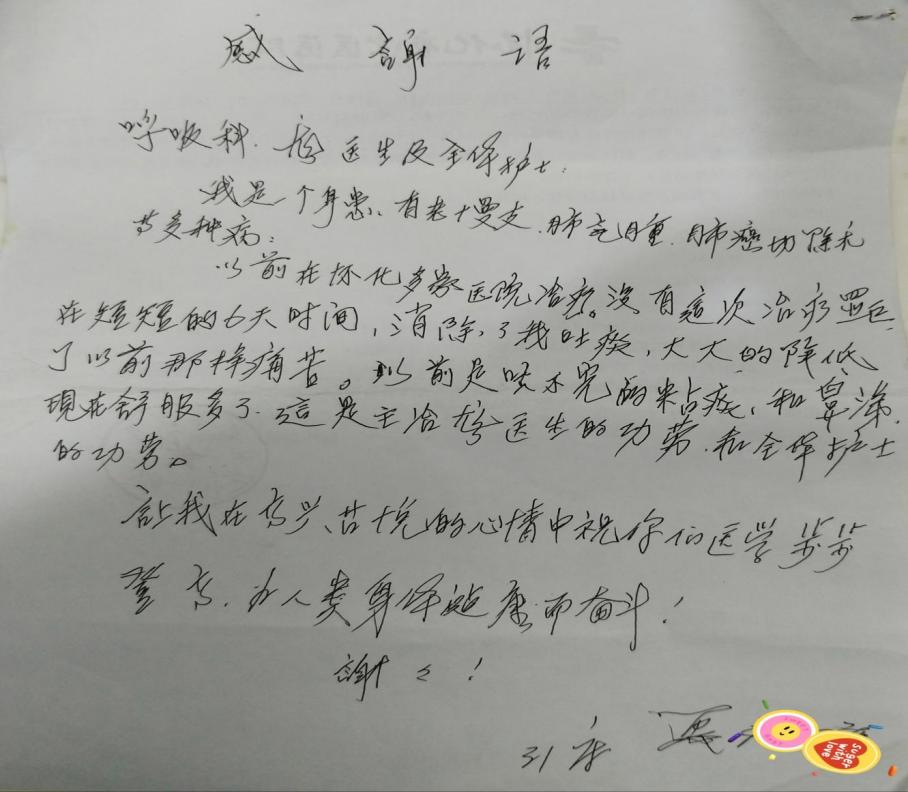 感謝语
呼吸科.医生及全体护士:
我是一个身患、有老慢支.肺气肿.肺癌切除术
等多种病:
以前在怀化多家医院治疗。没有這次治疗
在短短的6天时间,消除了我吐痰,大大的降低
了以前那样痛苦。以前是咳不完的粘痰、和鼻涕.
现在舒服多了.這是主治医生的功劳.和全体护士
的功劳。
让我在高兴、喜悦的心情中祝你们医学步步
登高.为人类身体健康而奋斗!
謝々!
31床
suger with love